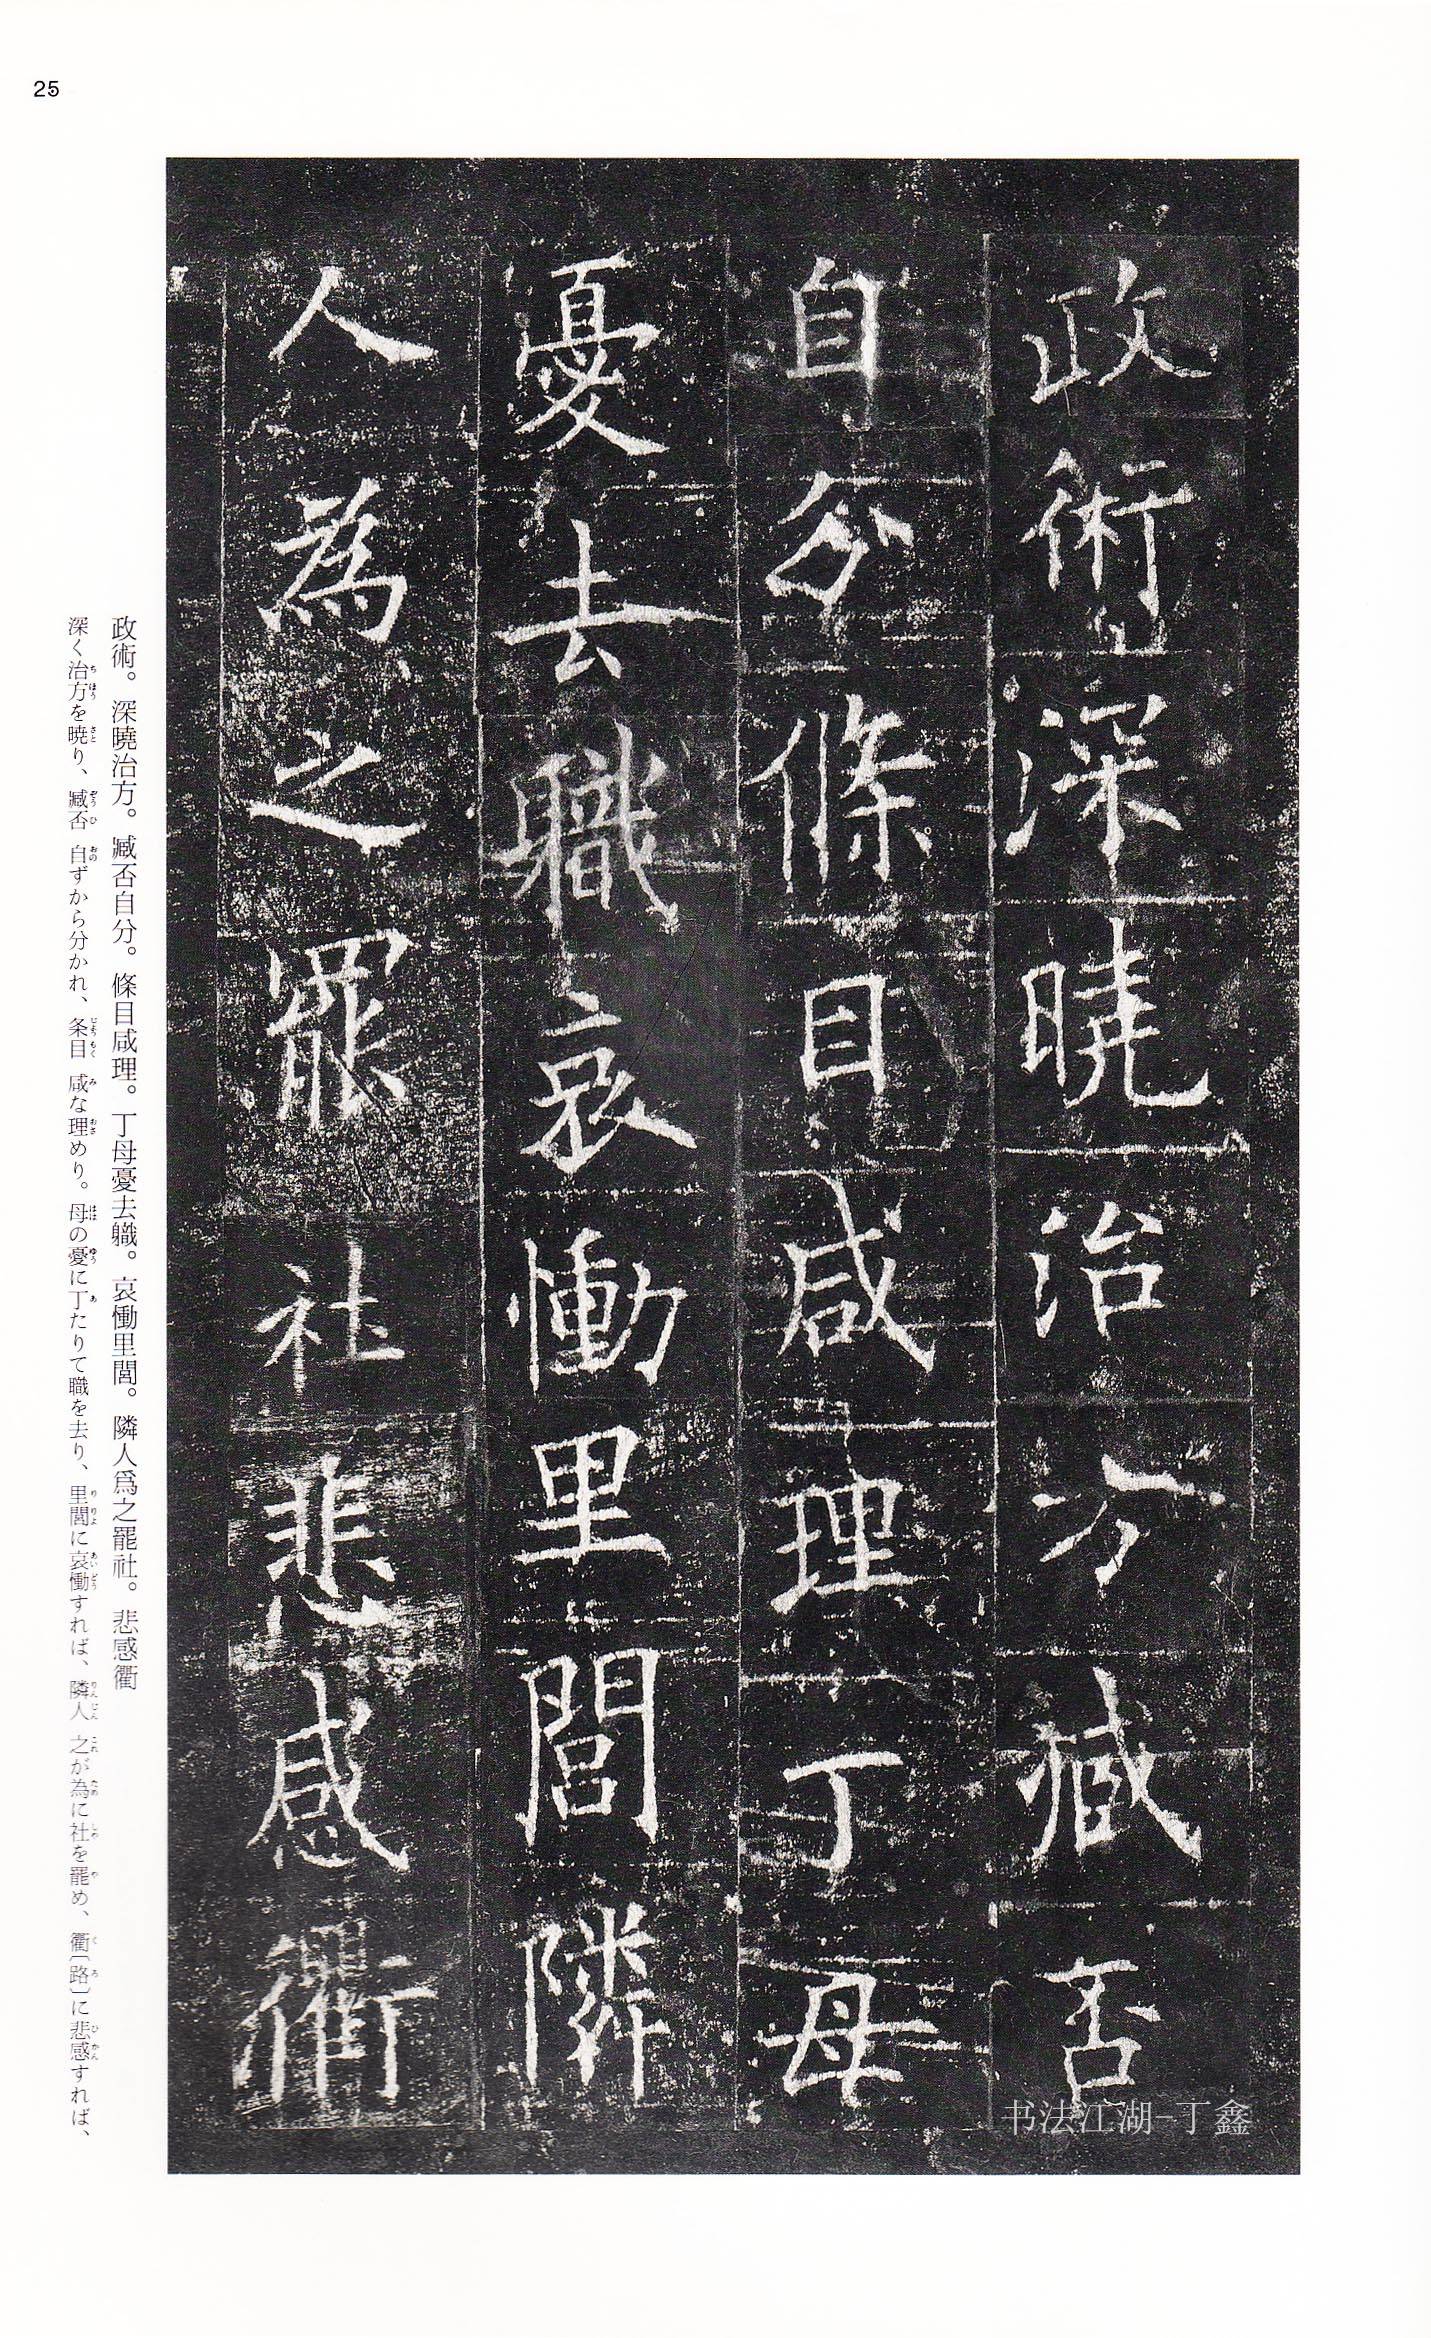 25
政術深曉治方臧否
自分條目咸理丁母
憂去職哀慟里閭隣
人為之罷社悲感衢
书法江湖-丁鑫
政術。深曉治方。臧否自分。條目咸理。丁母憂去職。哀慟里閭。隣人爲之罷社。悲感衢
深く治方を暁り、臧否 自ずから分かれ、条目 咸な理めり。母の憂に丁たりて職を去り、里閭に哀慟すれば、隣人 之が為に社を罷め、衢〔路〕に悲感すれば、